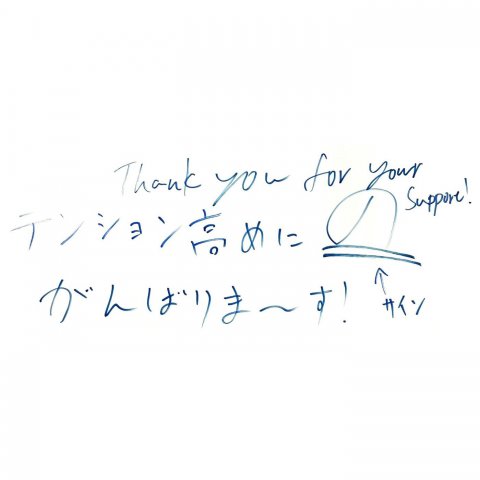 Thank you for your
Suppore!
テンション高めに の
がんばりま〜す!
↑
サイン